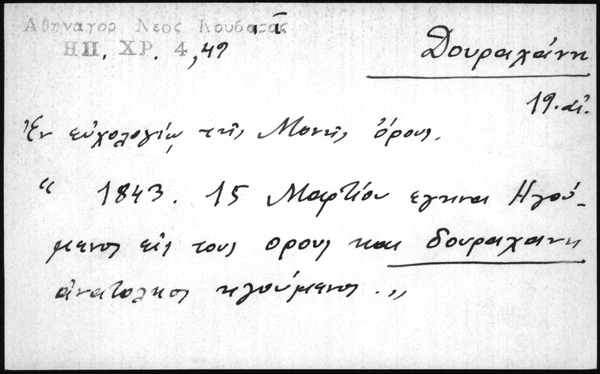 Αθηναγορ Νεος Κουβαρας
ΗΠ. ΧΡ. 4, 49
Δουραχάνη
19. αἰ.
Ἐν εὐχολογίῳ τῆς Μονῆς ὄρους.
“ 1843. 15 Μαρτίου εγηνα Ηγού-
μενος εἰς τους ορους και δουραχανη
ἀνατολησ ηγούμενος.„